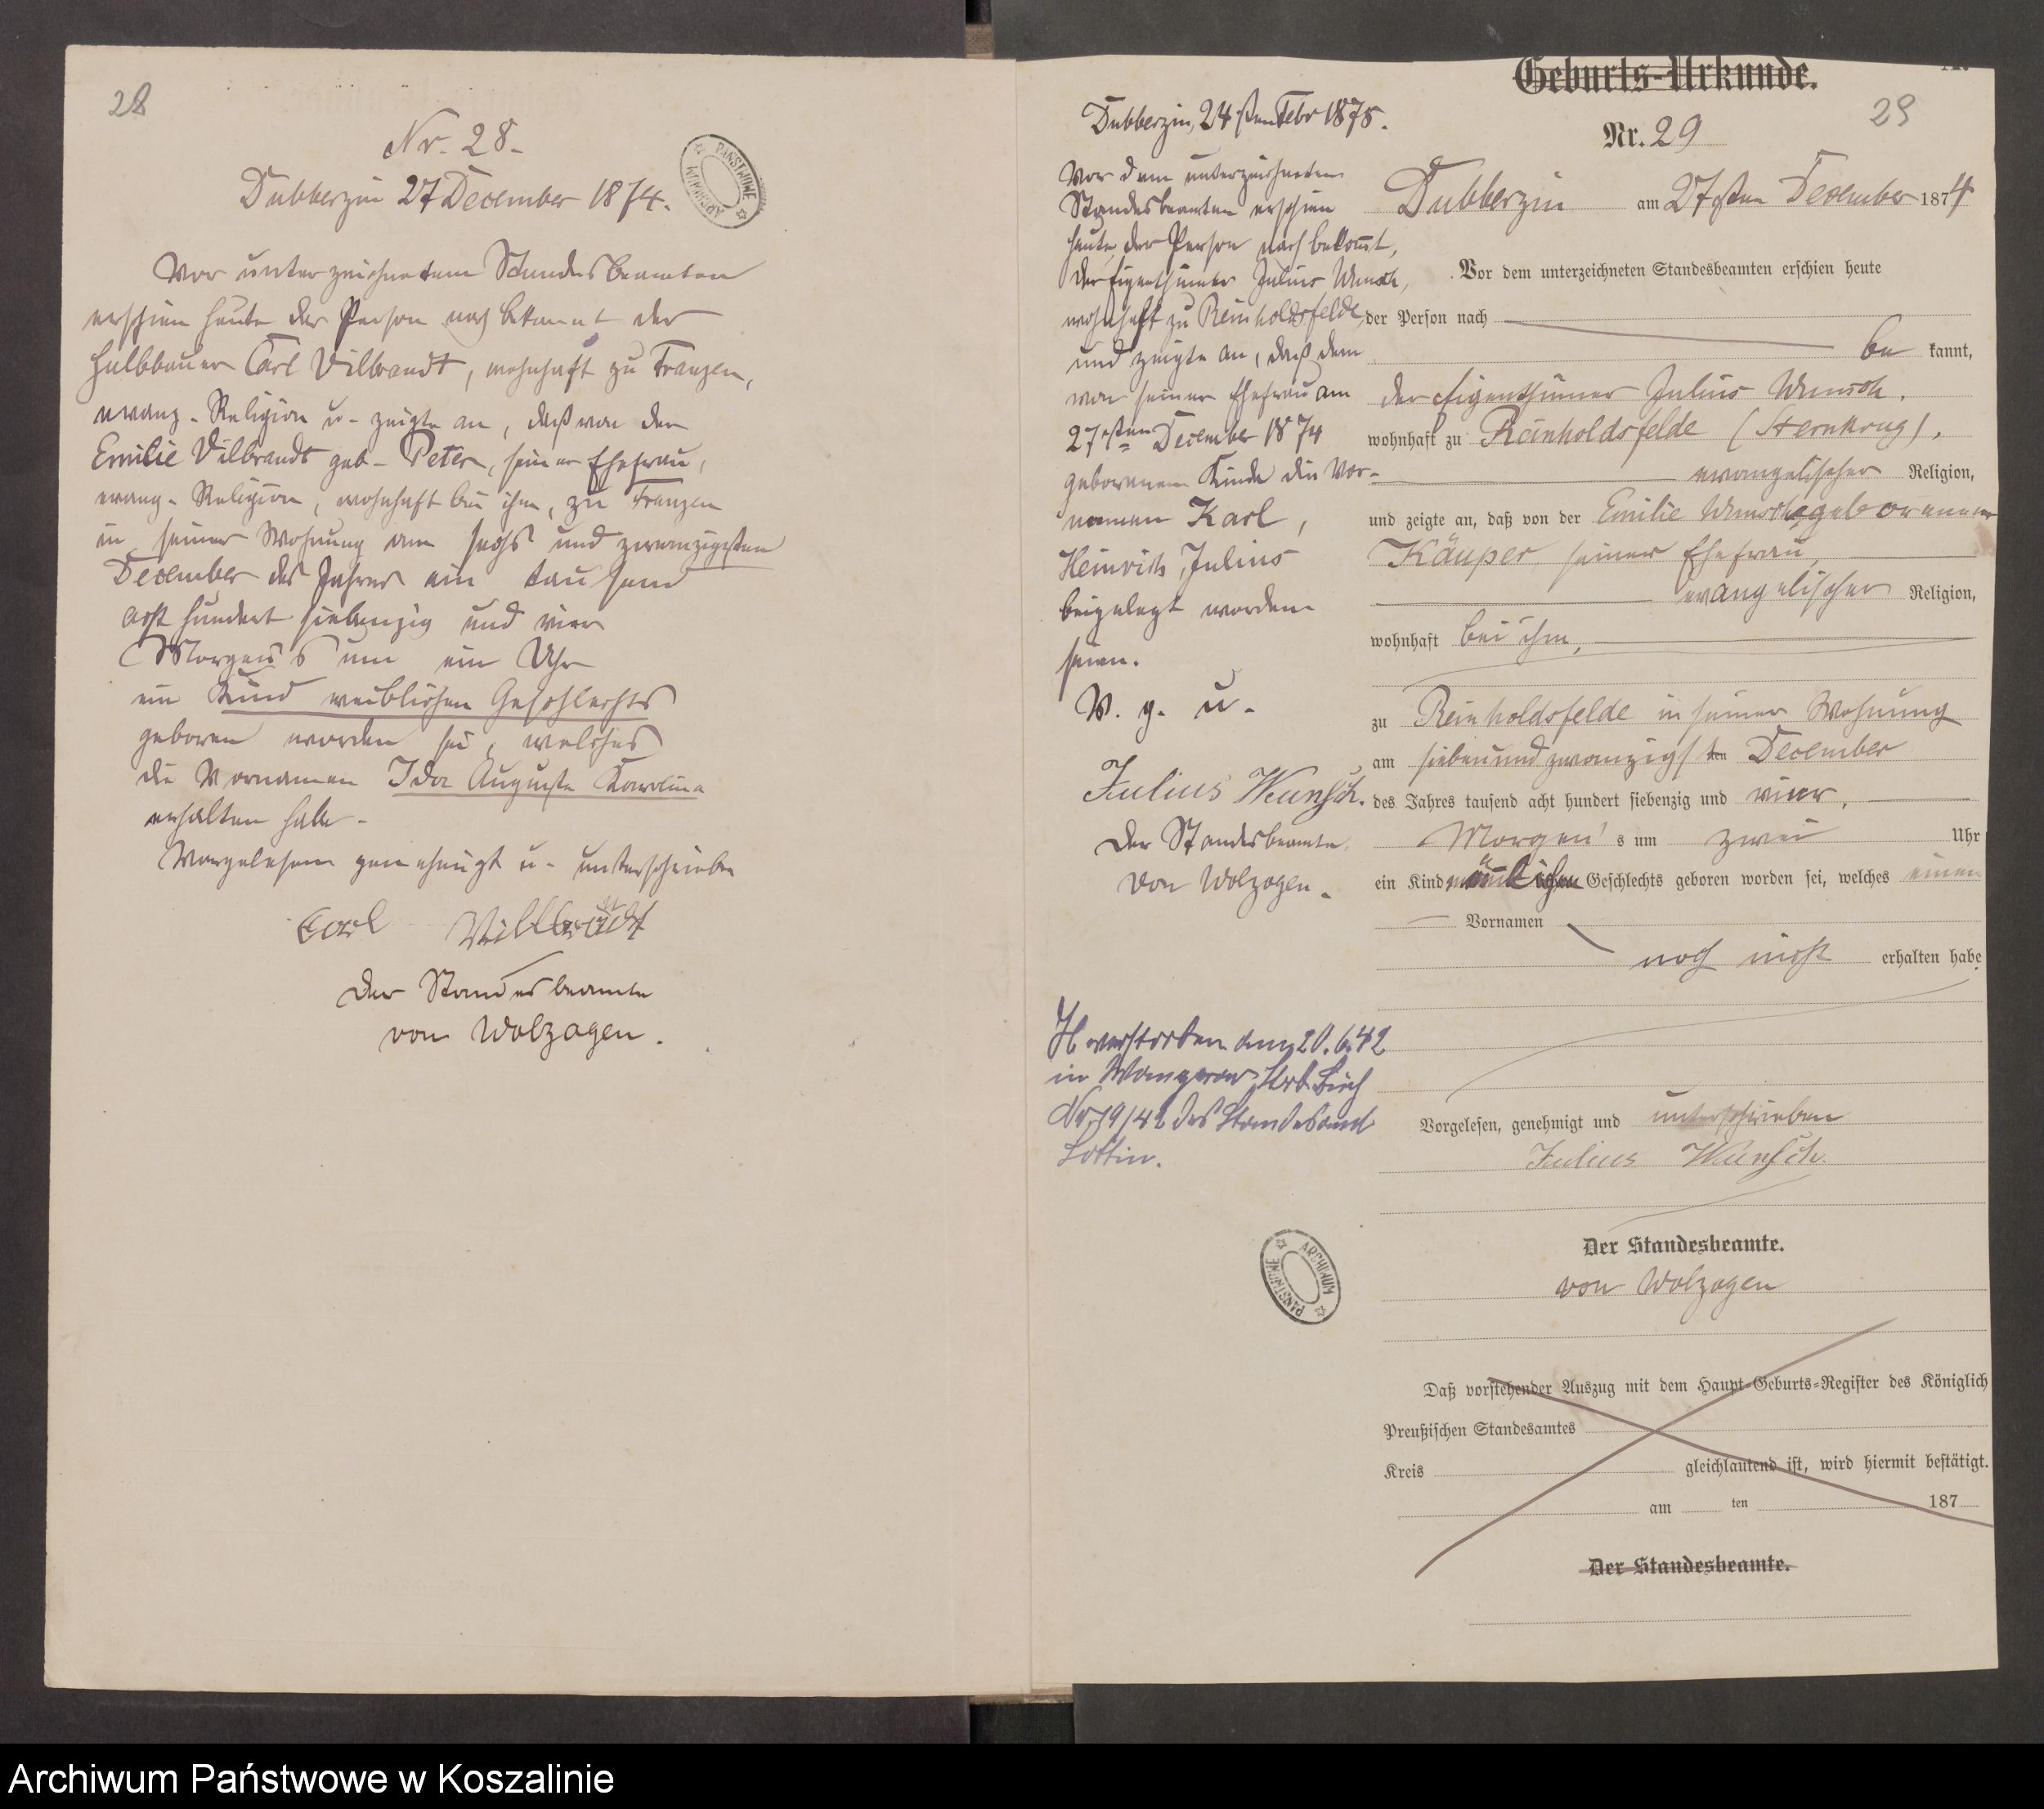 28
Nr. 28.
Dubberzin 27 December 1874.
PAŃSTWOWE ARCHIWUM
Vor unterzeichnetem Standesbeamten
erschien heute der Person nach bekannt der
Halbbauer Carl Vilbrandt, wohnhaft zu Franzen,
evang. Religion u. zeigte an, daß von der
Emilie Vilbrandt geb. Peter, seiner Ehefrau,
evang. Religion, wohnhaft bei ihm, zu Franzen
in seiner Wohnung am sechs und zwanzigsten
December des Jahres ein tausend
acht hundert siebenzig und vier
Morgens um ein Uhr
ein Kind weiblichen Geschlechts
geboren worden sei, welches
die Vornamen Ida Auguste Karolina
erhalten habe.
Vorgelesen genehmigt u. unterschrieben
Carl Villbrandt
Der Standesbeamte
von Wolzogen.
Dubberzin, 24sten Febr 1875.
Vor dem unterzeichneten
Standesbeamten erschien
heute, der Person nach bekannt,
der Eigenthümer Julius Wunsch,
wohnhaft zu Reinholdsfelde,
und zeigte an, daß dem
von seiner Ehefrau am
27sten December 1874
geborenem Kinde die Vor-
namen Karl,
Heinrich, Julius
beigelegt worden
seien.
V. g. u.
Julius Wunsch.
Der Standesbeamte.
von Wolzogen.
H verstorben am 20.6.42
in Wangerow,
Nr. 19/42 des Standesamt
Lottin.
ARCHIWUM PAŃSTWOWE
Geburts-Urkunde.
29
Nr. 29
Dubberzin am 27sten December 1874
Vor dem unterzeichneten Standesbeamten erschien heute
der Person nach
be kannt,
der Eigenthümer Julius Wunsch,
wohnhaft zu Reinholdsfelde (Sternkrug),
evangelischer Religion,
und zeigte an, daß von der Emilie Wunsch geborenener
Käuper, seiner Ehefrau,
evangelischer Religion,
wohnhaft bei ihm,
zu Reinholdsfelde in seiner Wohnung
am sieben und zwanzigsten December
des Jahres tausend acht hundert siebenzig und vier,
Morgen's um zwei Uhr
ein Kind männlichen Geschlechts geboren worden sei, welches einen
Vornamen
noch nicht erhalten habe
Vorgelesen, genehmigt und unterschrieben
Julius Wunsch.
Der Standesbeamte.
von Wolzogen
Daß vorstehender Auszug mit dem Haupt-Geburts-Register des Königlich
Preußischen Standesamtes
Kreis gleichlautend ist, wird hiermit bestätigt.
am ten 187
Der Standesbeamte.
Archiwum Państwowe w Koszalinie